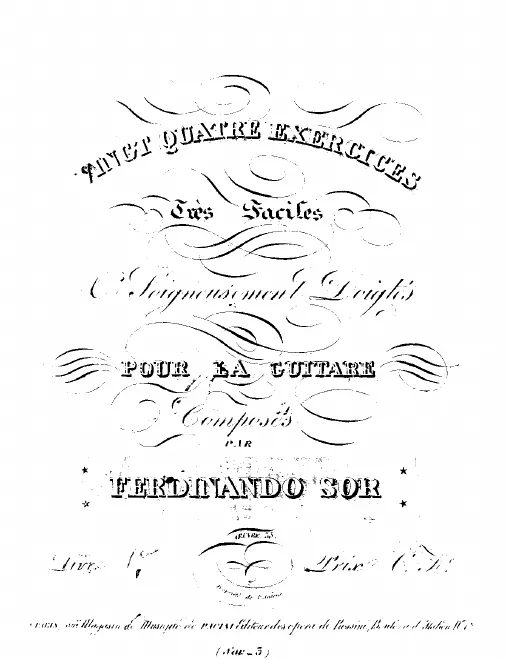 VINGT QUATRE EXERCICES
Très Faciles
Et Soigneusement Doigtés
POUR LA GUITARE
Composés
PAR
FERDINANDO SOR
ŒUVRE 35
Livre 1er
Prix 6 Fr.
Propriété de l'Editeur
PARIS au Magasin de Musique de PACINI Editeur des opera de Rossini, Boulevard Italien N°